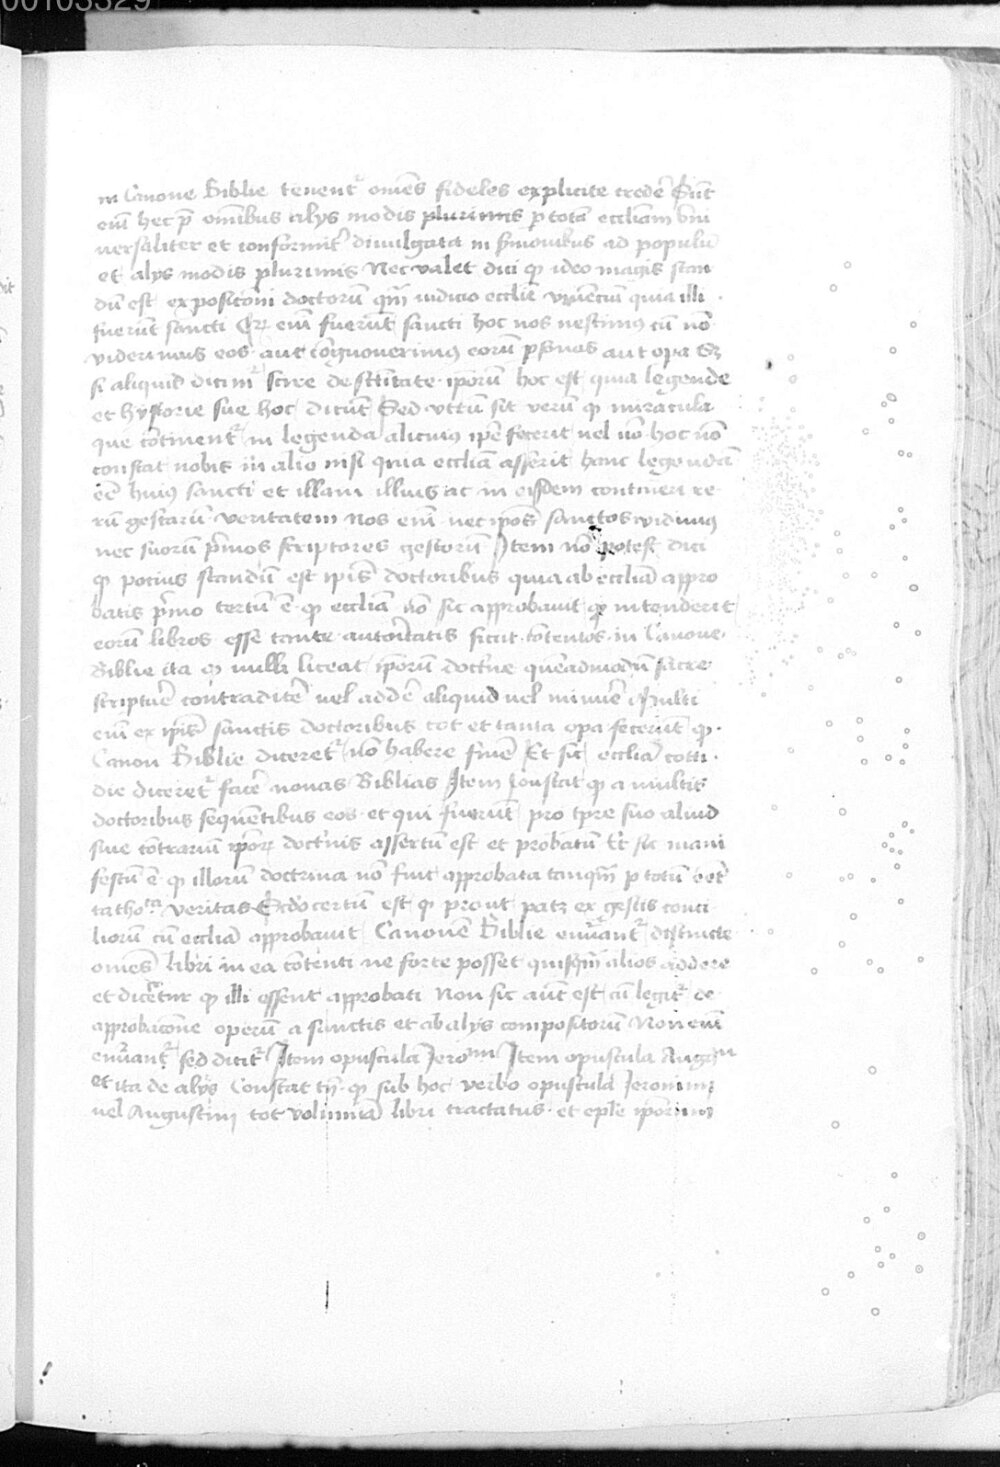 00103329
in Canone Biblie tenent~ om̄es fideles explicite credē Sūt
em̄ hec p̄ om̄ibus alys modis plurimis p totā eccliam vni
uersaliter et conformit~ diuulgata in s̄monibus ad populū
et alys modis plurimis Nec valet dici qꝫ ideo magis stan
dū est exposicōni doctorū qm̄ iudicio ecclīe viuenciū quia illi
fuerūt sancti Qꝛ em̄ fuerūt sancti hoc nos nescimꝰ cū nō
viderimus eos aut cōgnouerimꝰ eorū psonas aut opa Sꝫ
si aliquid dicim~ scire de sc̄titate ipōrum hoc est quia legende
et hystorie sue hoc dicūt Sed vtrū sit verū qꝫ miracula
que cōtinent~ in legenda alicuiꝰ ipē fecerit uel nō hoc nō
constat nobis in alio nisi quia eccliā asserit hanc legendā
eē huiꝰ sancti et illam illius ac in eisdem contineri re
rū gestarū veritatem Nos em̄ nec ipōs sanctos vidimꝰ
nec suorū p̄mos scriptores gestorū Item nō potest dici
qꝫ pocius standū est ipīs doctoribus quia ab eccliā appro
batis p̄mo certū ē qꝫ eccliā nō sic approbauit qꝫ intenderit
eorū libros esse tante autoritatis sicut cōtentos in Canone
Biblie ita qꝫ nulli liceat ipōrum doctrīe quēadmodū sacre
scripturē contradicēr uel addēr aliquid uel minuēr Multi
em̄ ex ipīs sanctis doctoribus tot et tanta opa fecerūt qꝫ
Canon Biblie diceret~ nō habere finē Et sic eccliā cotti
die diceret~ facēr nouas Biblias Item constat qꝫ a multis
doctoribus sequētibus eos et qui fuerūt pro tpre suo aliud
siue cōtrariū ipōꝝ doctrīis assertū est et probatū Et sic mani
festū ē qꝫ illorū doctrina nō fuit approbata tanqm̄ p totū
catholica veritas Scdo certū est qꝫ prout patꝫ ex gestis conci
liorū cū eccliā approbauit Canonē Biblie enu͂ant~ distincte
om̄es libri in ea cōtenti ne forte posset quisqm̄ alios addere
et dicēretur qꝫ illi essent approbati Non sic aūt est cū legit~ de
approbacōne operū a sanctis et ab alys compositorū Non em̄
enu͂ant~ sed dicit~ Item opuscula Ieroni Item opuscula Augni
et ita de alys Constat tn̄ qꝫ sub hoc verbo opuscula Ieronimi
uel Augustini tot volumiā libri tractatus et eple ipōrum